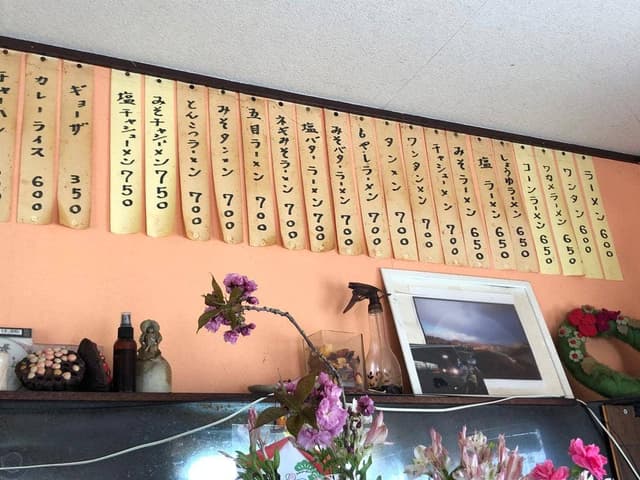 ラーメン 600
ワンタン 600
ワカメラーメン 650
コーンラーメン 650
しょうゆラーメン 650
塩ラーメン 650
みそラーメン 650
チャシューメン 700
ワンタンメン 700
タンメン 700
もやしラーメン 700
みそバターラーメン 700
塩バターラーメン 700
ネギみそラーメン 700
五目ラーメン 700
みそタンメン 700
とんこつラーメン 700
みそチャシューメン 750
塩チャシューメン 750
ギョーザ 350
カレーライス 600
チャーハン